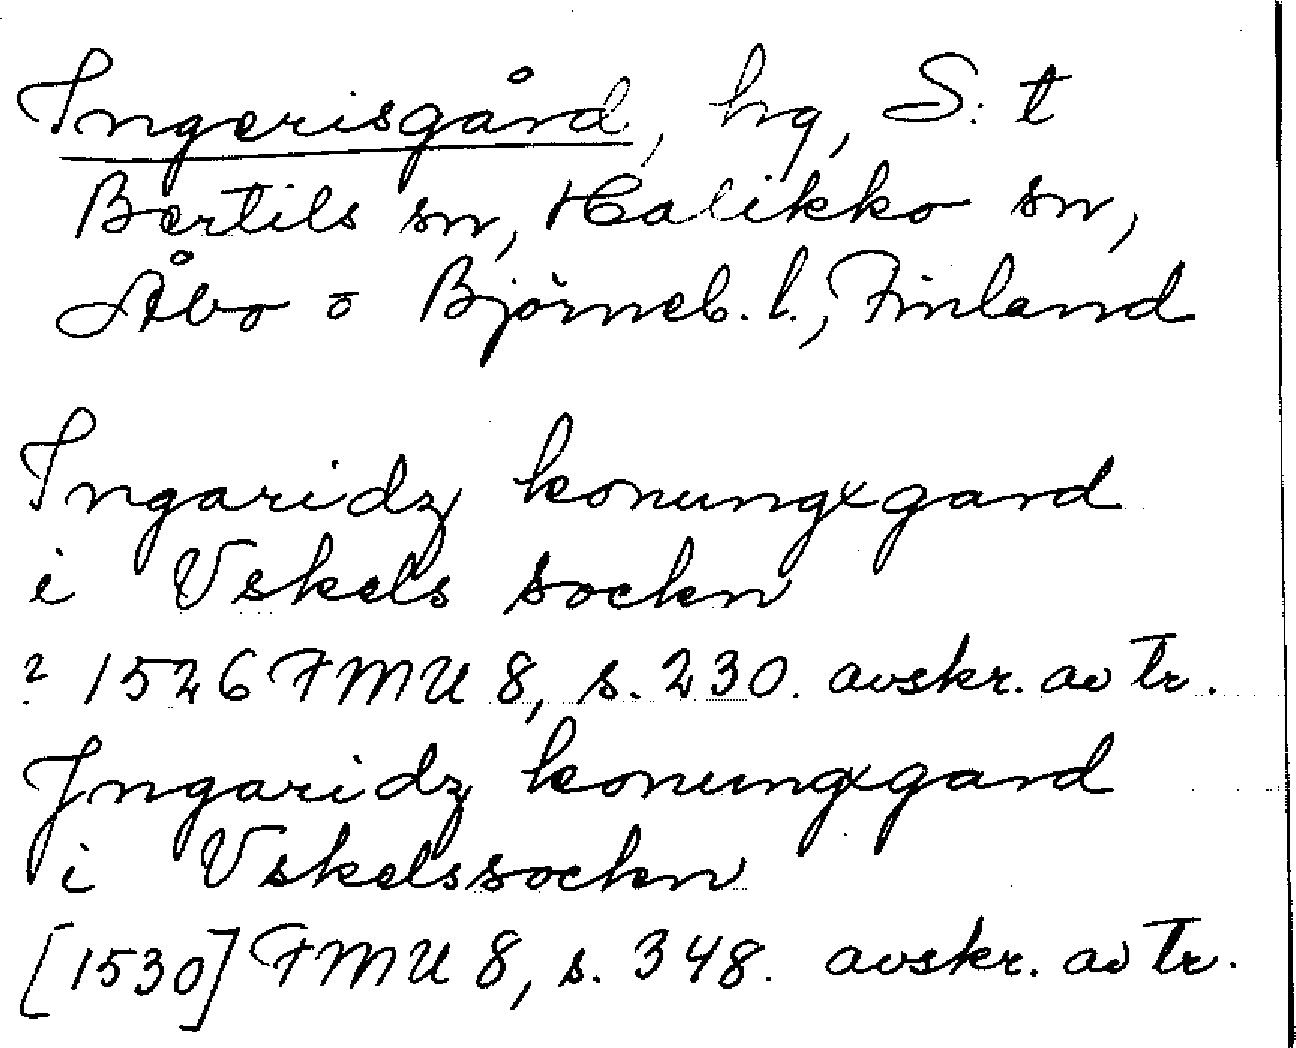 Ingerisgård, hg, S:t
Bertils sn, Halikko sn,
Åbo o Björneb. l., Finland
Ingaridz konungxgard
i Vskels sockn
? 1526 FMU 8, s. 230. avskr. av tr.
Jngaridz konungxgard
i Vskelssockn
[1530] FMU 8, s. 348. avskr. av tr.